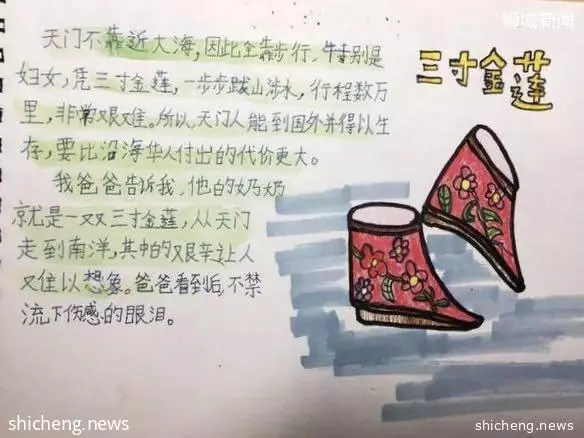 狮城新闻
三寸金莲
天门不靠近大海,因此全靠步行、特别是
妇女,凭三寸金莲,一步步跋山涉水,行程数万
里,非常艰难。所以,天门人能到国外并得以生
存,要比沿海华人付出的代价更大。
我爸爸告诉我,他的奶奶
就是一双三寸金莲,从天门
走到南洋,其中的艰辛让人
难以想象。爸爸看到后,不禁
流下伤感的眼泪。
shicheng.news
shicheng.news